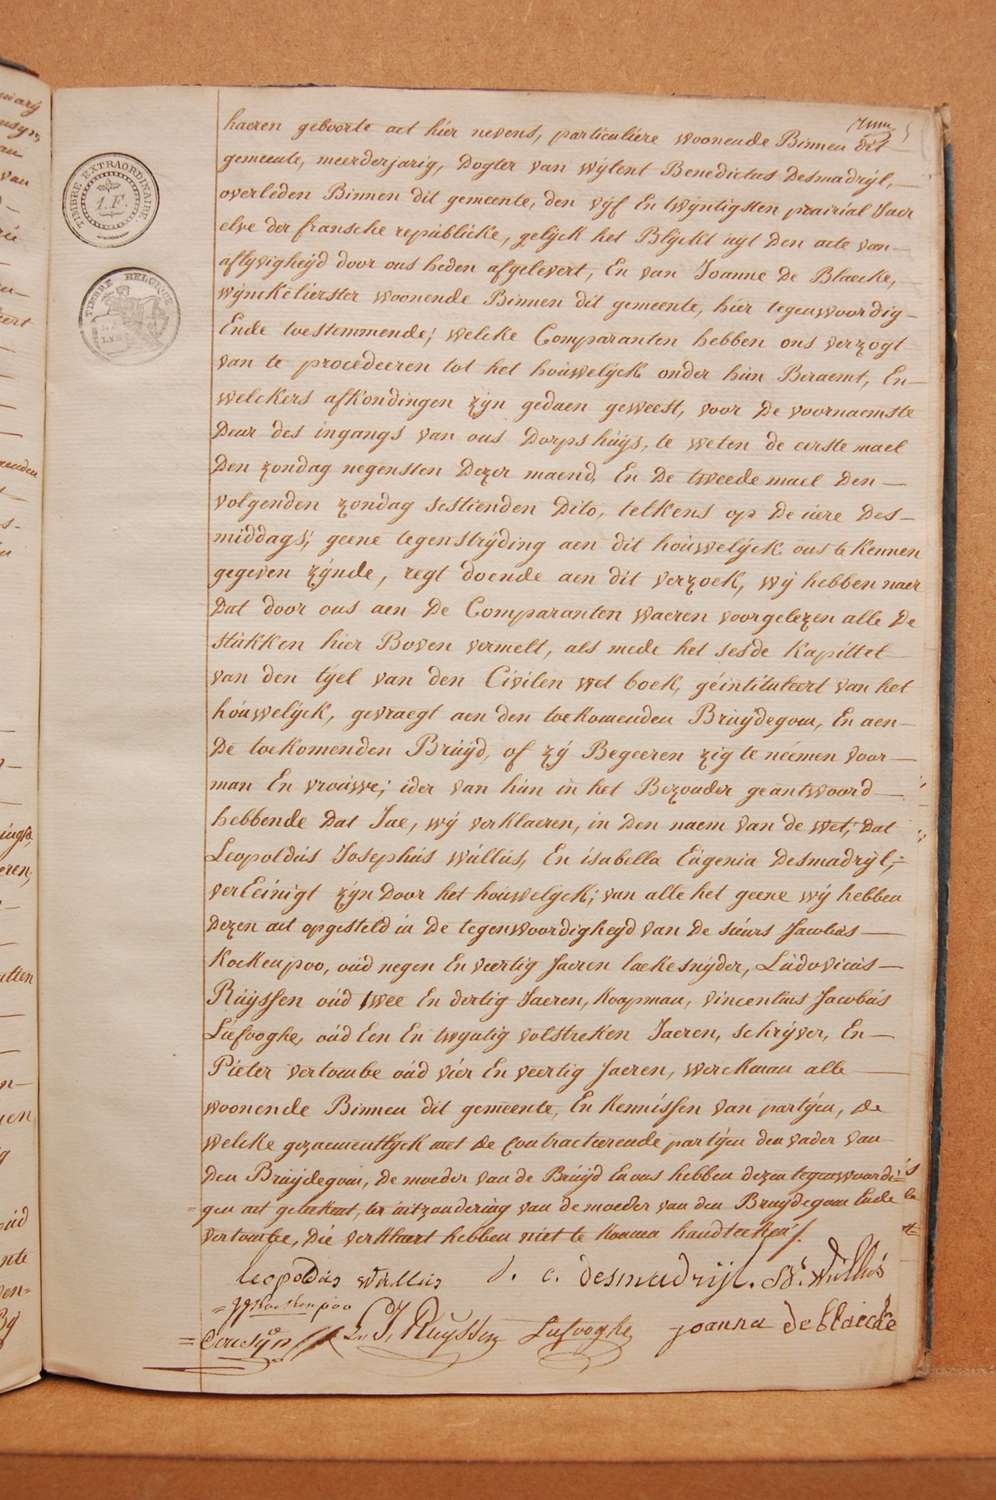 TIMBRE EXTRAORDINAIRE
1. F.
TIMBRE BELGIQUE
haeren geboorte act hier nevens, particuliere woonende Binnen dit
gemeente, meerderjarig, Dogter van wylent Benedictus Desmadrÿl,
overleden Binnen dit gemeente, den vÿf En twÿntigsten prairial Jaer
elve der fransche republicke, gelÿck het Blÿckt uÿt den acte van
aflÿvigheÿd door ons heden afgelevert, En van Joanne De Blaecke,
wÿnckelierster woonende Binnen dit gemeente, hier tegenwoordig
Ende toestemmende; welcke Comparanten hebben ons verzogt
van te procedeeren tot het houwelÿck onder hun Beraemt, En
welckers afkondingen zÿn gedaen geweest, voor De voornaemste
Deur des ingangs van ons Dorps huÿs, te weten de eerste mael
Den zondag negensten Dezer maend, En De tweede mael Den
volgenden zondag sestienden Dito, telkens op De uere Des-
middags; geene tegenstrÿding aen dit houwelÿck ons te kennen
gegeven zÿnde, regt doende aen dit verzoek, wÿ hebben naer
Dat door ons aen De Comparanten waeren voorgelezen alle De
stukken hier Boven vermelt, als mede het sesde kapittel
van den tÿtel van den Civilen wet boek, géintituleert van het
houwelÿck, gevraegt aen den toekomenden Bruÿdegom, En aen
De toekomenden Bruÿd, of zÿ Begeeren zig te néemen voor
man En vrouwe; ider van hun in het Bezonder geantwoord
hebbende Dat Jae, wÿ verklaeren, in Den naem van de wet, Dat
Leopoldus Josephus Wullus, En isabella Eugenia Desmadrÿl,
verEinigt zÿn Door het houwelÿck; van alle het geene wÿ hebben
Dezen act opgesteld in De tegenwoordigheÿd van De sieurs Jacobus
Kockenpoo, oud negen En veertig Jaeren laekesnÿder, Ludovicus
Ruÿssen oud twee En dertig Jaeren, koopman, vincentius Jacobus
Lufvoghe, oud Een En twÿntig volstreken Jaeren, schrÿver, En
Pieter vertombe oud vier En veertig Jaeren, werckman alle
woonende Binnen dit gemeente, En kennissen van partÿen, De
welcke gezaementlÿck met De Contracteerende partÿen den vader van
Den Bruÿdegom, De moeder van de Bruÿd En ons hebben dezen tegenwoordi-
gen act geteekent, ter uitzondering van de moeder van den Bruÿdegom Ende
vertombe, Die verklaert hebben niet te konnen handteekens/.
Leopoldus Wullus
I. E. desmadrijl.
JJ Kockenpoo
L. J. Ruyssen
Lufvoghe
joanna de blaecke